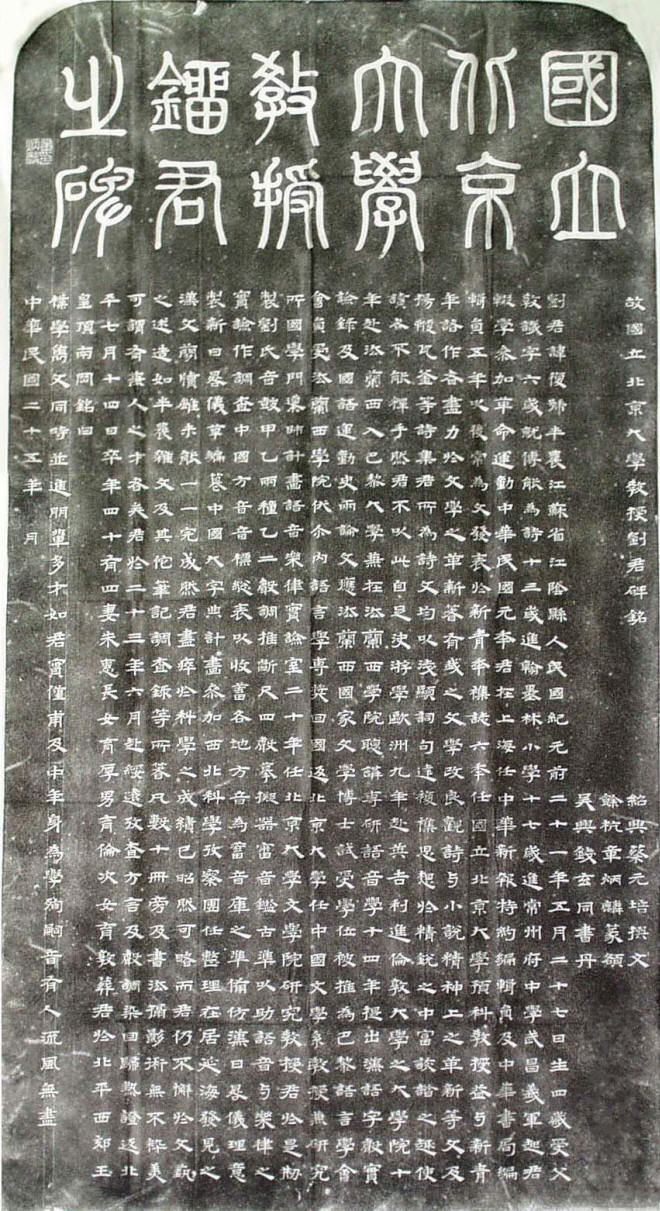 國立北京大學教授鎦君之碑
故國立北京大學教授劉君碑銘
紹興蔡元培撰文
餘杭章炳麟篆額
吳興錢玄同書丹
劉君諱復號半農江蘇省江陰縣人民國紀元前二十一年五月二十七日生四歲受父
教識字六歲就傅能為詩十三歲進翰墨林小學十七歲進常州府中學武昌義軍起君
輟學參加革命運動中華民國元年君在上海任中華新報特約編輯員及中華書局編
輯員五年以後常為文發表於新青年雜誌六年任國立北京大學預科教授益與新青
年諸作者盡力於文學之革新著有我之文學改良觀詩與小說精神上之革新等文及
揚鞭瓦釜等詩集君所為詩文均以淺顯詞句達複雜思想於精銳之中富詼諧之趣使
讀者不能釋手然君不以此自足決游學歐洲九年赴英吉利進倫敦大學之大學院十
年赴法蘭西入巴黎大學兼在法蘭西學院聽講專研語音學十四年提出漢語字聲實
論錄及國語運動史兩論文應法蘭西國家文學博士試受學位被推為巴黎語言學會
會員受法蘭西學院伏爾內語言學專獎回國返北京大學任中國文學系教授兼研究
所國學門導師計畫語音樂律實論室二十年任北京大學文學院研究教授君於是剏
製劉氏音鼓甲乙兩種乙二聲調推斷尺四聲摹擬器審音鑑古準以助語音與樂律之
實論作調查中國方音音標總表以收蓄各地方音為蓄音庫之準備仿漢日晷儀理意
製新日晷儀草編纂中國大字典計畫參加西北科學攷察團任整理在居延海發見之
漢文簡牘雖未能一一完成然君盡瘁於科學之成績已昭然可略而君仍不懈於文藝
之述造如半農雜文及其佗筆記調查錄等所著凡數十冊旁及書法攝影術無不粹美
可謂有兼人之才者矣君於二十三年六月赴綏遠攷查方言及聲調染回歸熱證返北
平七月十四日卒年四十有四妻朱惠長女育厚男育倫次女育敦葬君於北平西郊玉
皇頂南岡銘曰
樸學雋文同時並進朋輩多才如君實僅甫及中年身為學殉嗣音有人流風無盡
中華民國二十五年 月